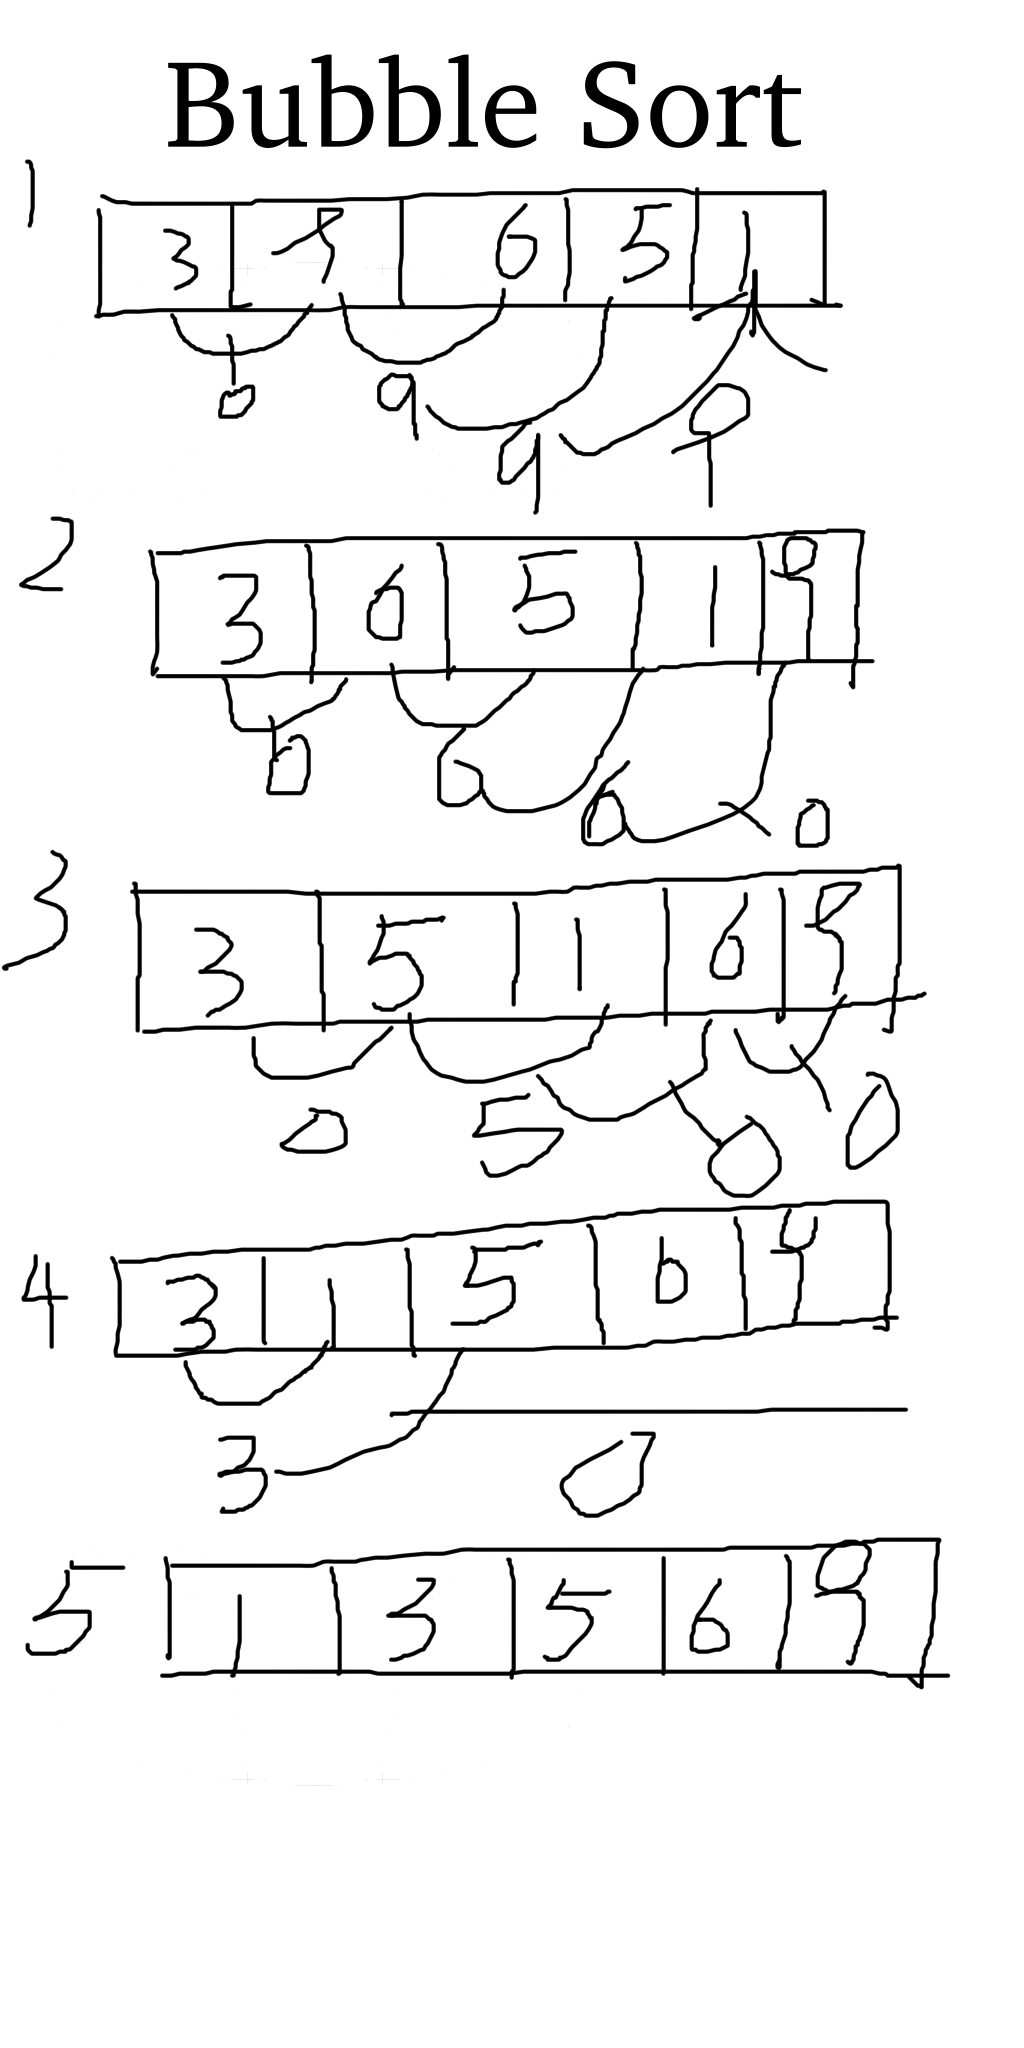 Bubble Sort
1
3 9 6 5 1
0 9
9 9
2
3 6 5 1 9
0 6
6 0
3
3 5 1 6 9
0 5 0 0
4
3 1 5 6 9
3 0
5
1 3 5 6 9